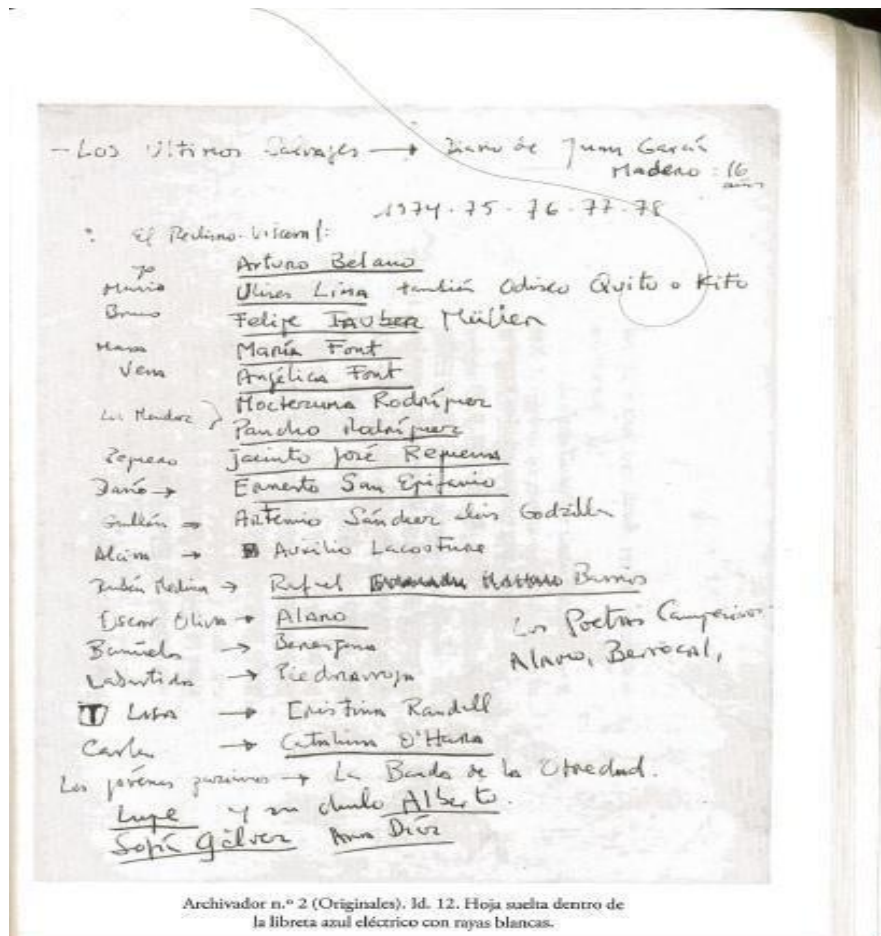 - Los Ultimos Salvajes → Diario de Juan García
Madero: 16
años
1974-75-76-77-78
: El Realismo-Visceral:
yo Arturo Belano
Mario Ulises Lima también Odiseo Quito o Kito
Bruno Felipe Müller
Mara María Font
Vera Angélica Font
Los Mendoz } Moctezuma Rodríguez
Pancho Rodríguez
Jacinto José Requena
Darío → Ernesto San Epifanio
Guillén → Artemio Sánchez alias Godzilla
Alcira → Auxilio Lacouture
Rubén Medina → Rafael Barrios
Oscar Oliva → Álamo
Los Poetas Campesinos:
Bañuelos →
Álamo, Berrocal,
Labastida → Piedrarroja
Lisa → Cristina Randell
Carla → Catalina O'Hara
Los jóvenes → La Banda de la Otredad.
Lupe y su chulo Alberto.
Sofía Gálvez Ana Díaz
Archivador n.º 2 (Originales). Id. 12. Hoja suelta dentro de
la libreta azul eléctrico con rayas blancas.